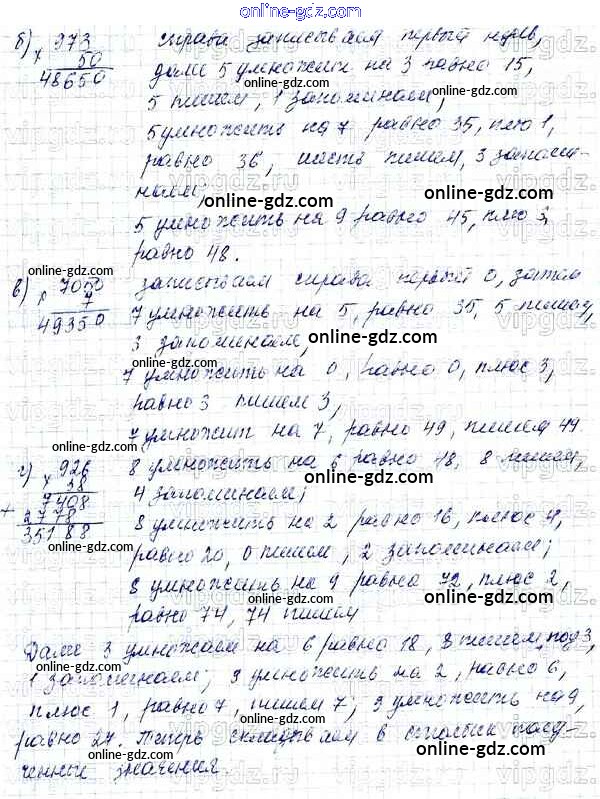 online-gdz.com
б) 973 справа записываем первый нуль,
x 50 далее 5 умножить на 3 равно 15,
48650 5 пишем, 1 запоминаем;
5 умножить на 7 равно 35, плюс 1,
равно 36, шесть пишем, 3 запоми-
наем;
online-gdz.com
5 умножить на 9 равно 45, плюс 3,
равно 48.
online-gdz.com
online-gdz.com
в) 7050 записываем справа первый 0, затем
x 7 7 умножить на 5, равно 35, 5 пишем,
49350 3 запоминаем,
online-gdz.com
online-gdz.com
7 умножить на 0, равно 0, плюс 3,
равно 3 пишем 3,
online-gdz.com
7 умножит на 7, равно 49, пишем 49
online-gdz.com
г) 926 8 умножить на 6 равно 18, 8 пишем,
x 38 4 запоминаем;
online-gdz.com
7408
+ 2778 8 умножить на 2 равно 16, плюс 4,
35188 равно 20, 0 пишем, 2 запоминаем;
online-gdz.com
online-gdz.com
8 умножить на 9 равно 72, плюс 2,
равно 74, 74 пишем
online-gdz.com
Далее 3 умножаем на 6 равно 18, 8 пишем под 3,
online-gdz.com
1 запоминаем; 3 умножить на 2, равно 6,
плюс 1, равно 7, пишем 7; 3 умножить на 9,
online-gdz.com
равно 27. Теперь складываем в столбик полу-
online-gdz.com
ченные значения
online-gdz.com